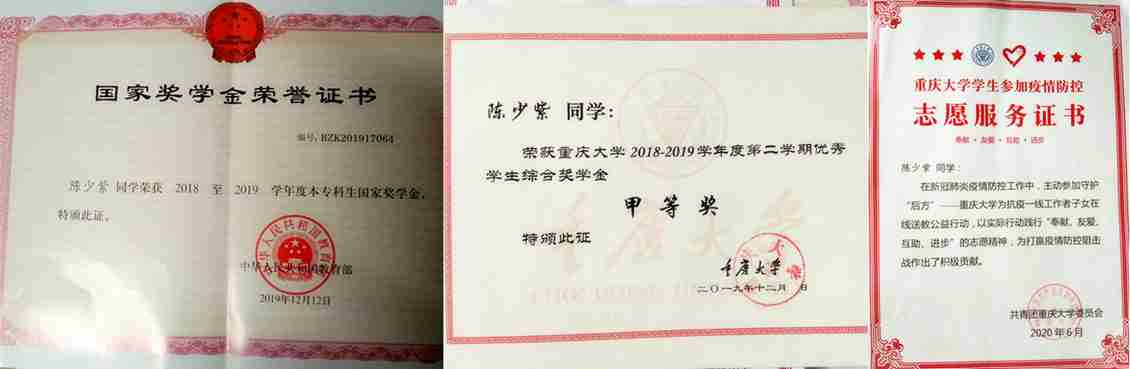 国家奖学金荣誉证书
编号:BZK201917064
陈少紫 同学荣获 2018 至 2019 学年度本专科生国家奖学金,
特颁此证。
中华人民共和国教育部
2019年12月12日
陈少紫 同学:
荣获重庆大学2018-2019学年度第二学期优秀
学生综合奖学金
甲等奖
特颁此证
重庆大学
二〇一九年十二月 日
重庆大学学生参加疫情防控
志愿服务证书
奉献·友爱·互助·进步
陈少紫 同学:
在新冠肺炎疫情防控工作中,主动参加守护
“后方”——重庆大学为抗疫一线工作者子女在
线送教公益行动,以实际行动践行“奉献、友爱、
互助、进步”的志愿精神,为打赢疫情防控阻击
战作出了积极贡献。
共青团重庆大学委员会
2020年6月